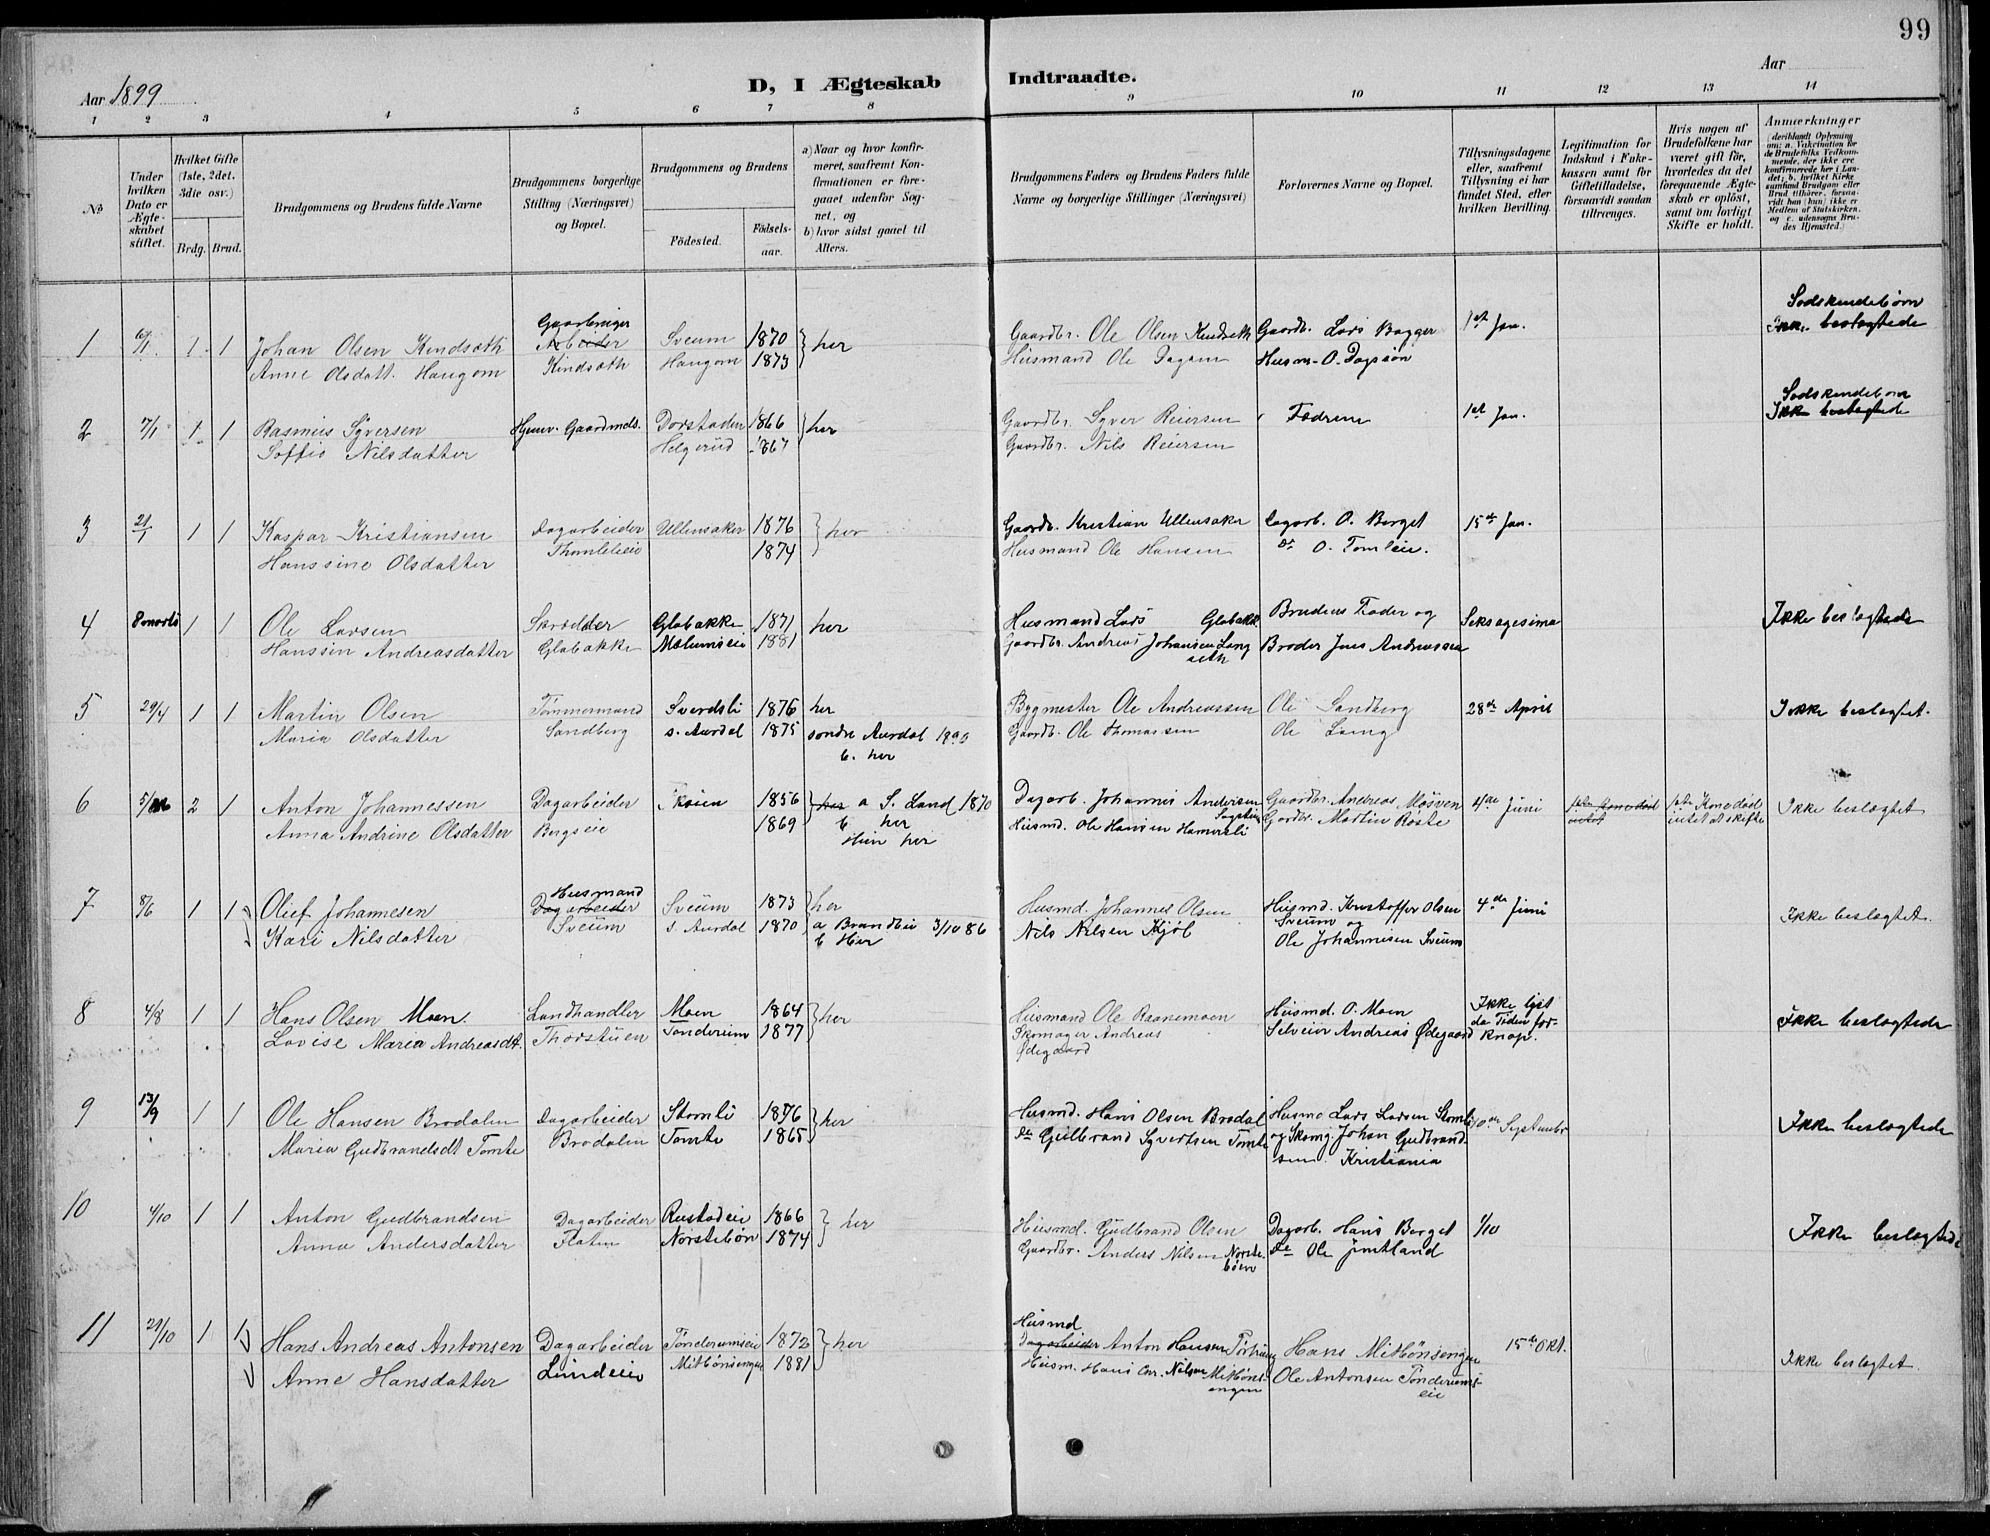 99
Aar 1899
D, I Ægteskab Indtraadte.
Aar
1 2 3 4 5 6 7 8 9 10 11 12 13 14
No
Under hvilken Dato er Ægteskabet stiftet.
Hvilket Gifte (1ste, 2det. 3die osv.)
Brdg. Brud.
Brudgommens og Brudens fulde Navne
Brudgommens borgerlige Stilling (Næringsvei) og Bopæl.
Brudgommens og Brudens
Födested. Födselsaar.
a) Naar og hvor konfirmeret, saafremt Konfirmationen er foregaaet udenfor Sognet, og
b) hvor sidst gaaet til Alters.
Brudgommens Faders og Brudens Faders fulde Navne og borgerlige Stillinger (Næringsvei)
Forlovernes Navne og Bopæl.
Tillysningsdagene eller, saafremt Tillysning ei har fundet Sted, efter hvilken Bevilling.
Legitimation for Indskud i Enkekassen samt for Giftetilladelse, forsaavidt saadan tiltrænges.
Hvis nogen af Brudefolkene har været gift för, hvorledes da det foregaaende Ægteskab er oplöst, samt om lovligt Skifte er holdt.
Anmærkninger
(deriblandt Oplysning om: a. Vakcination for de Brudefolks Vedkommende, der ikke ere konfirmerede her i Landet; b. hvilket Kirkesamfund Brudgom eller Brud tilhörer, forsaavidt han (hun) ikke er Medlem af Statskirken, og c. udensogns Brudes Hjemsted.)
1 6/1 1 1 Johan Olsen Kindsæth Gaarbruger Arbeider Kindsæth Sveum 1870 her Gaardbr. Ole Olsen Kindseth Gaardb. Lars Bagger 1st Jan. Sødskendebørn Ikke beslægtede
Anne Olsdatt. Haugom Haugom 1873 Husmand Ole Dagsøn Husm. O. Dagsøn
2 7/1 1 1 Rasmus Syversen Hjemv. Gaardmds. Dorstaden 1866 her Gaardbr. Syver Reiersen Fædrene 1st Jan. Sødskendebørn Ikke beslægtede
Soffie Nilsdatter Helgerud 1867 Gaardbr. Nils Reiersen
3 21/1 1 1 Kaspar Kristiansen Dagarbeider Ullensaker 1876 her Gaardb. Kristian Ullensaker Dagarb. O. Berget 15de Jan.
Hanssine Olsdatter Thomleleie 1874 Husmand Ole Hansen Do O. Tomleie.
4 8 marts 1 1 Ole Larsen Skrædder Glabakke 1871 her Husmand Lars Glabakk Brudens Fader og Seksagesima Ikke beslægtede
Hanssin Andreasdatter Glabakke Mælumseie 1881 Gaardbr. Andreas Johansen Langseth Broder Jens Andreassen
5 29/4 1 1 Martin Olsen Tømmermand Sverdsli 1876 her Bygmester Ole Andreassen Ole Sandberg 28de April Ikke beslægtet.
Maria Olsdatter Sandberg s. Aurdal 1875 søndre Aurdal b. her Gaardb. Ole Thomassen Ole Laing
6 2 1 Anton Johannessen Dagarbeider Skøien 1856 her a S. Land 1870 Dagarb. Johannes Andersen Gaardbr. Andreas Møsven 4de Juni Kone død intet at skifte Ikke beslægtet
Anna Andrine Olsdatter Bergseie 1869 b. her Hun her Husmd. Ole Hansen Hamersli Gardbr. Martin Røste
7 8/6 1 1 Oluf Johannesen Husmand Dagarbeider Sveum Sveum 1873 her Husmd. Johannes Olsen Husmd. Kristoffer Olsen Sveum og 4de Juni Ikke beslægtet.
Kari Nilsdatter S. Aurdal 1870 a Brandbu 3/10 86 b Her Nils Nilsen Kjøl Ole Johannesen Sveum
8 4/8 1 1 Hans Olsen Moen. Landhandler Moen 1864 her Husmand Ole Raanemoen Husmd. O. Moen Ikke lyst da Tiden for knap. Ikke beslægtede
Lovise Marea Andreasdt. Thorstuen Tønderum 1877 Skomager Andreas Ødegaard Selveier Andreas Ødegaard
9 13/9 1 1 Ole Hansen Brodalen Dagarbeider Stomli 1876 her Husmd. Hans Olsen Brodal Husmd Lars Larsen Stomli 10de September Ikke beslægtede
Maria Gudbrandsdt Tomte Brodalen Tomte 1865 Do Gulbrand Syvertsen Tomte og Skomg. Johan Gudbrandsen. Kristiania
10 4/10 1 1 Anton Gudbrandsen Dagarbeider Rustadeie 1866 her Husmd. Gudbrand Olsen Dagarb. Hans Berget 1/10 Ikke beslægtede
Anna Andersdatter Flaten Norstebøn 1874 Gaardbr. Anders Nilsen Norstebøen Do Ole Jimtland
11 21/10 1 1 Hans Andreas Antonsen Dagarbeider Tønderumseie 1872 her Husmd Dagarbeider Anton Hansen Hans Mitbønsengen 15de Okt. Ikke beslægtet.
Anne Hansdatter Lundeie Mitbønsengen 1881 Husm. Hans Chr. Nilsen Mitbønsengen Ole Antonsen Tønderumseie